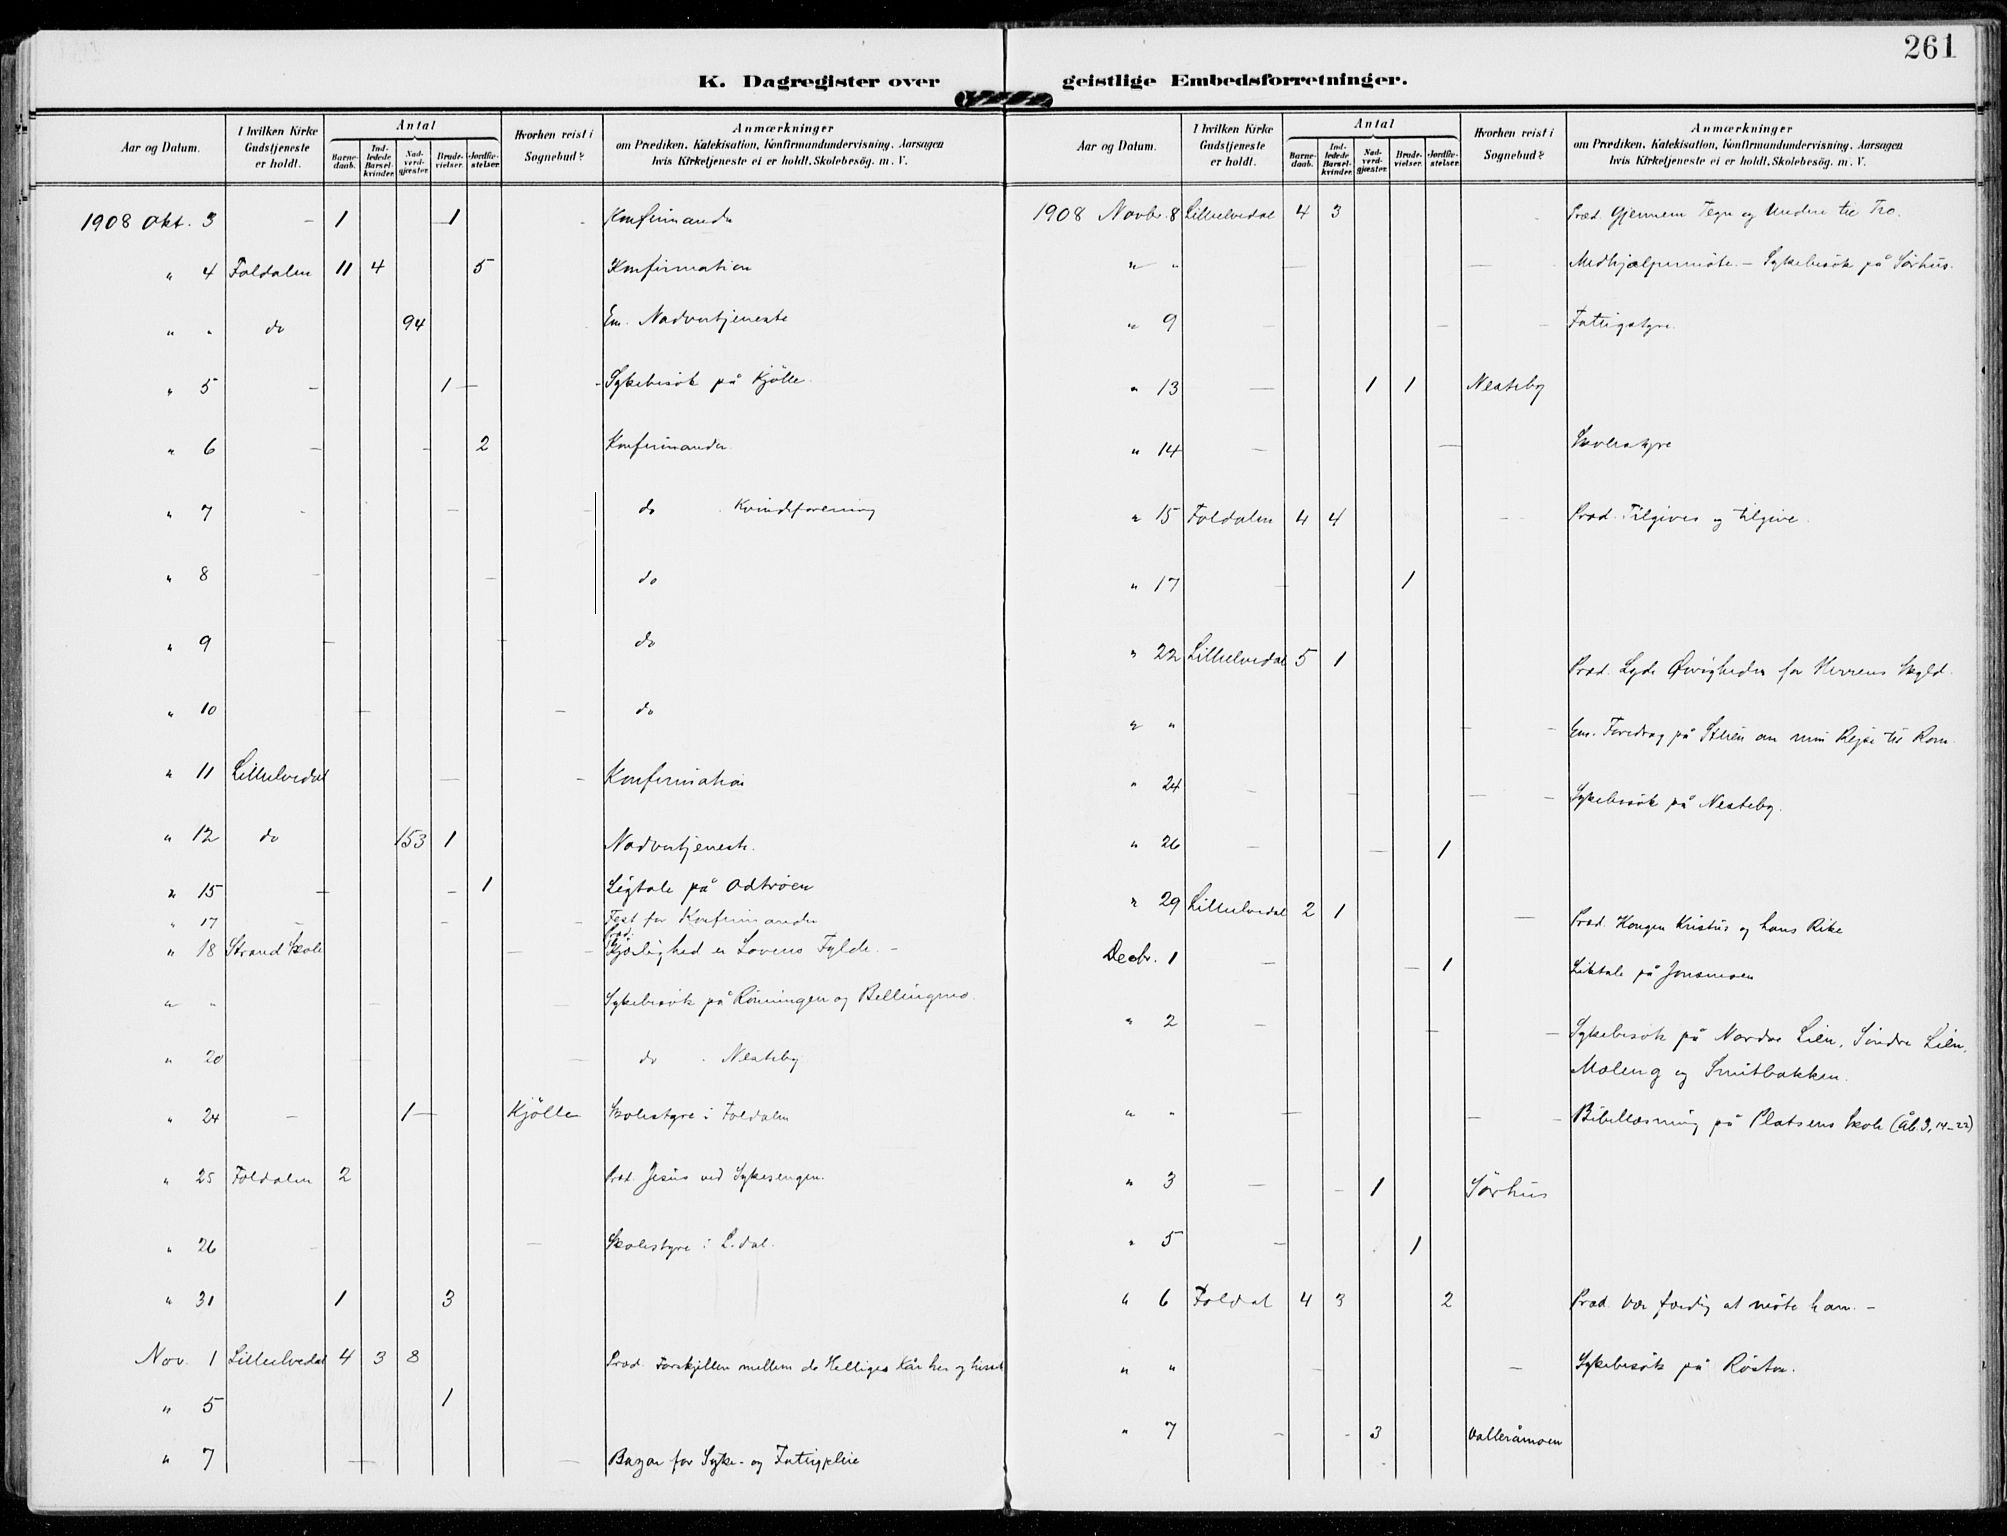 261
K. Dagregister over geistlige Embedsforretninger.
Aar og Datum. I hvilken Kirke Gudstjeneste er holdt. Antal Barnedaab. Indledede Barselkvinder. Nadverdgjæster. Brudevielser. Jordfæstelser. Hvorhen reist i Sognebud? Anmærkninger om Prædiken, Katekisation, Konfirmandundervisning, Aarsagen hvis Kirketjeneste ei er holdt, Skolebesög. m. V.
1908 Okt. 3 – 1 1 Konfirmander
" 4 Foldalen 11 4 5 Konfirmation
" " do 94 Em. Nadvertjeneste
" 5 – 1 – Sykebesök på Kjölle.
" 6 – 2 Konfirmander.
" 7 do . Kvindeforening
" 8 – do
" 9 – do
" 10 – do
" 11 Lilleelvedal – Konfirmation
" 12 do 153 1 Nadvertjeneste.
" 15 – 1 Ligtale på Odtröen
" 17 – Fest for Konfirmander
" 18 Strand Skole – Præd. Kjærlighed er Lovens Fylde. –
" " – Sykebesök på Rönningen og Bellingmo.
" 20 – do . Nesteby
" 24 – 1 – Kjölle Skolestyre i Foldalen
" 25 Foldalen 2 Præd. Jesus ved Sykesengen.
" 26 – Skolestyre i L.dal.
" 31 1 3
Nov. 1 Lilleelvedal 4 3 8 Præd. Forskjellen mellem de Helliges Kår her og hisset
" 5 1
" 7 – Bazar for Syke- og Fattigpleie
Aar og Datum. I hvilken Kirke Gudstjeneste er holdt. Antal Barnedaab. Indledede Barselkvinder. Nadverdgjæster. Brudevielser. Jordfæstelser. Hvorhen reist i Sognebud? Anmærkninger om Prædiken, Katekisation, Konfirmandundervisning, Aarsagen hvis Kirketjeneste ei er holdt, Skolebesög. m. V.
1908 Novbr. 8 Lilleelvedal 4 3 Præd. Gjennem Tegn og Undere til Tro.
" " – Medhjælpermöte. – Sykebesök på Sörhus.
" 9 – Fattigstyre.
" 13 – 1 1 Nesteby
" 14 – Skolestyre
" 15 Foldalen 4 4 Præd. Tilgives og tilgive.
" 17 – 1
" 22 Lilleelvedal 5 1 Præd. Lyde Øvrigheden for Herrens Skyld.
" " – Em. Foredrag på Stein om min Rejse til Rom.
" 24 – Sykebesök på Nesteby.
" 26 – 1
" 29 Lilleelvedal 2 1 Præd. Kongen Kristus og hans Rike
Decbr. 1 – 1 Liktale på Jonsmoen
" 2 – Sykebesök på Nordre Lien, Söndre Lien,
Moleng og Smitbakken.
" " – Bibellæsning på Platsens Skole (Åb. 3, 14–22)
" 3 – 1 Sörhus
" 5 – 1
" 6 Foldal 4 3 2 Præd. Vær færdig at möte ham. –
" " – Sykebesök på Rösten.
" 7 – 3 Valleråmoen